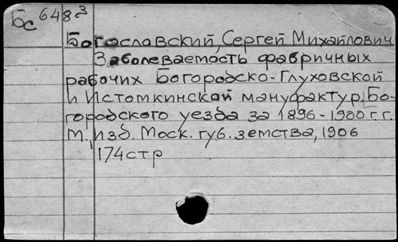 Бс 648²
Богославский, Сергей Михайлович
Заболеваемость фабричных
рабочих Богородско-Глуховской
и Истомкинской мануфактур, Бо-
городского уезда за 1896-1900 г.г.
М, Изд. Моск. губ. земства, 1906
174 стр